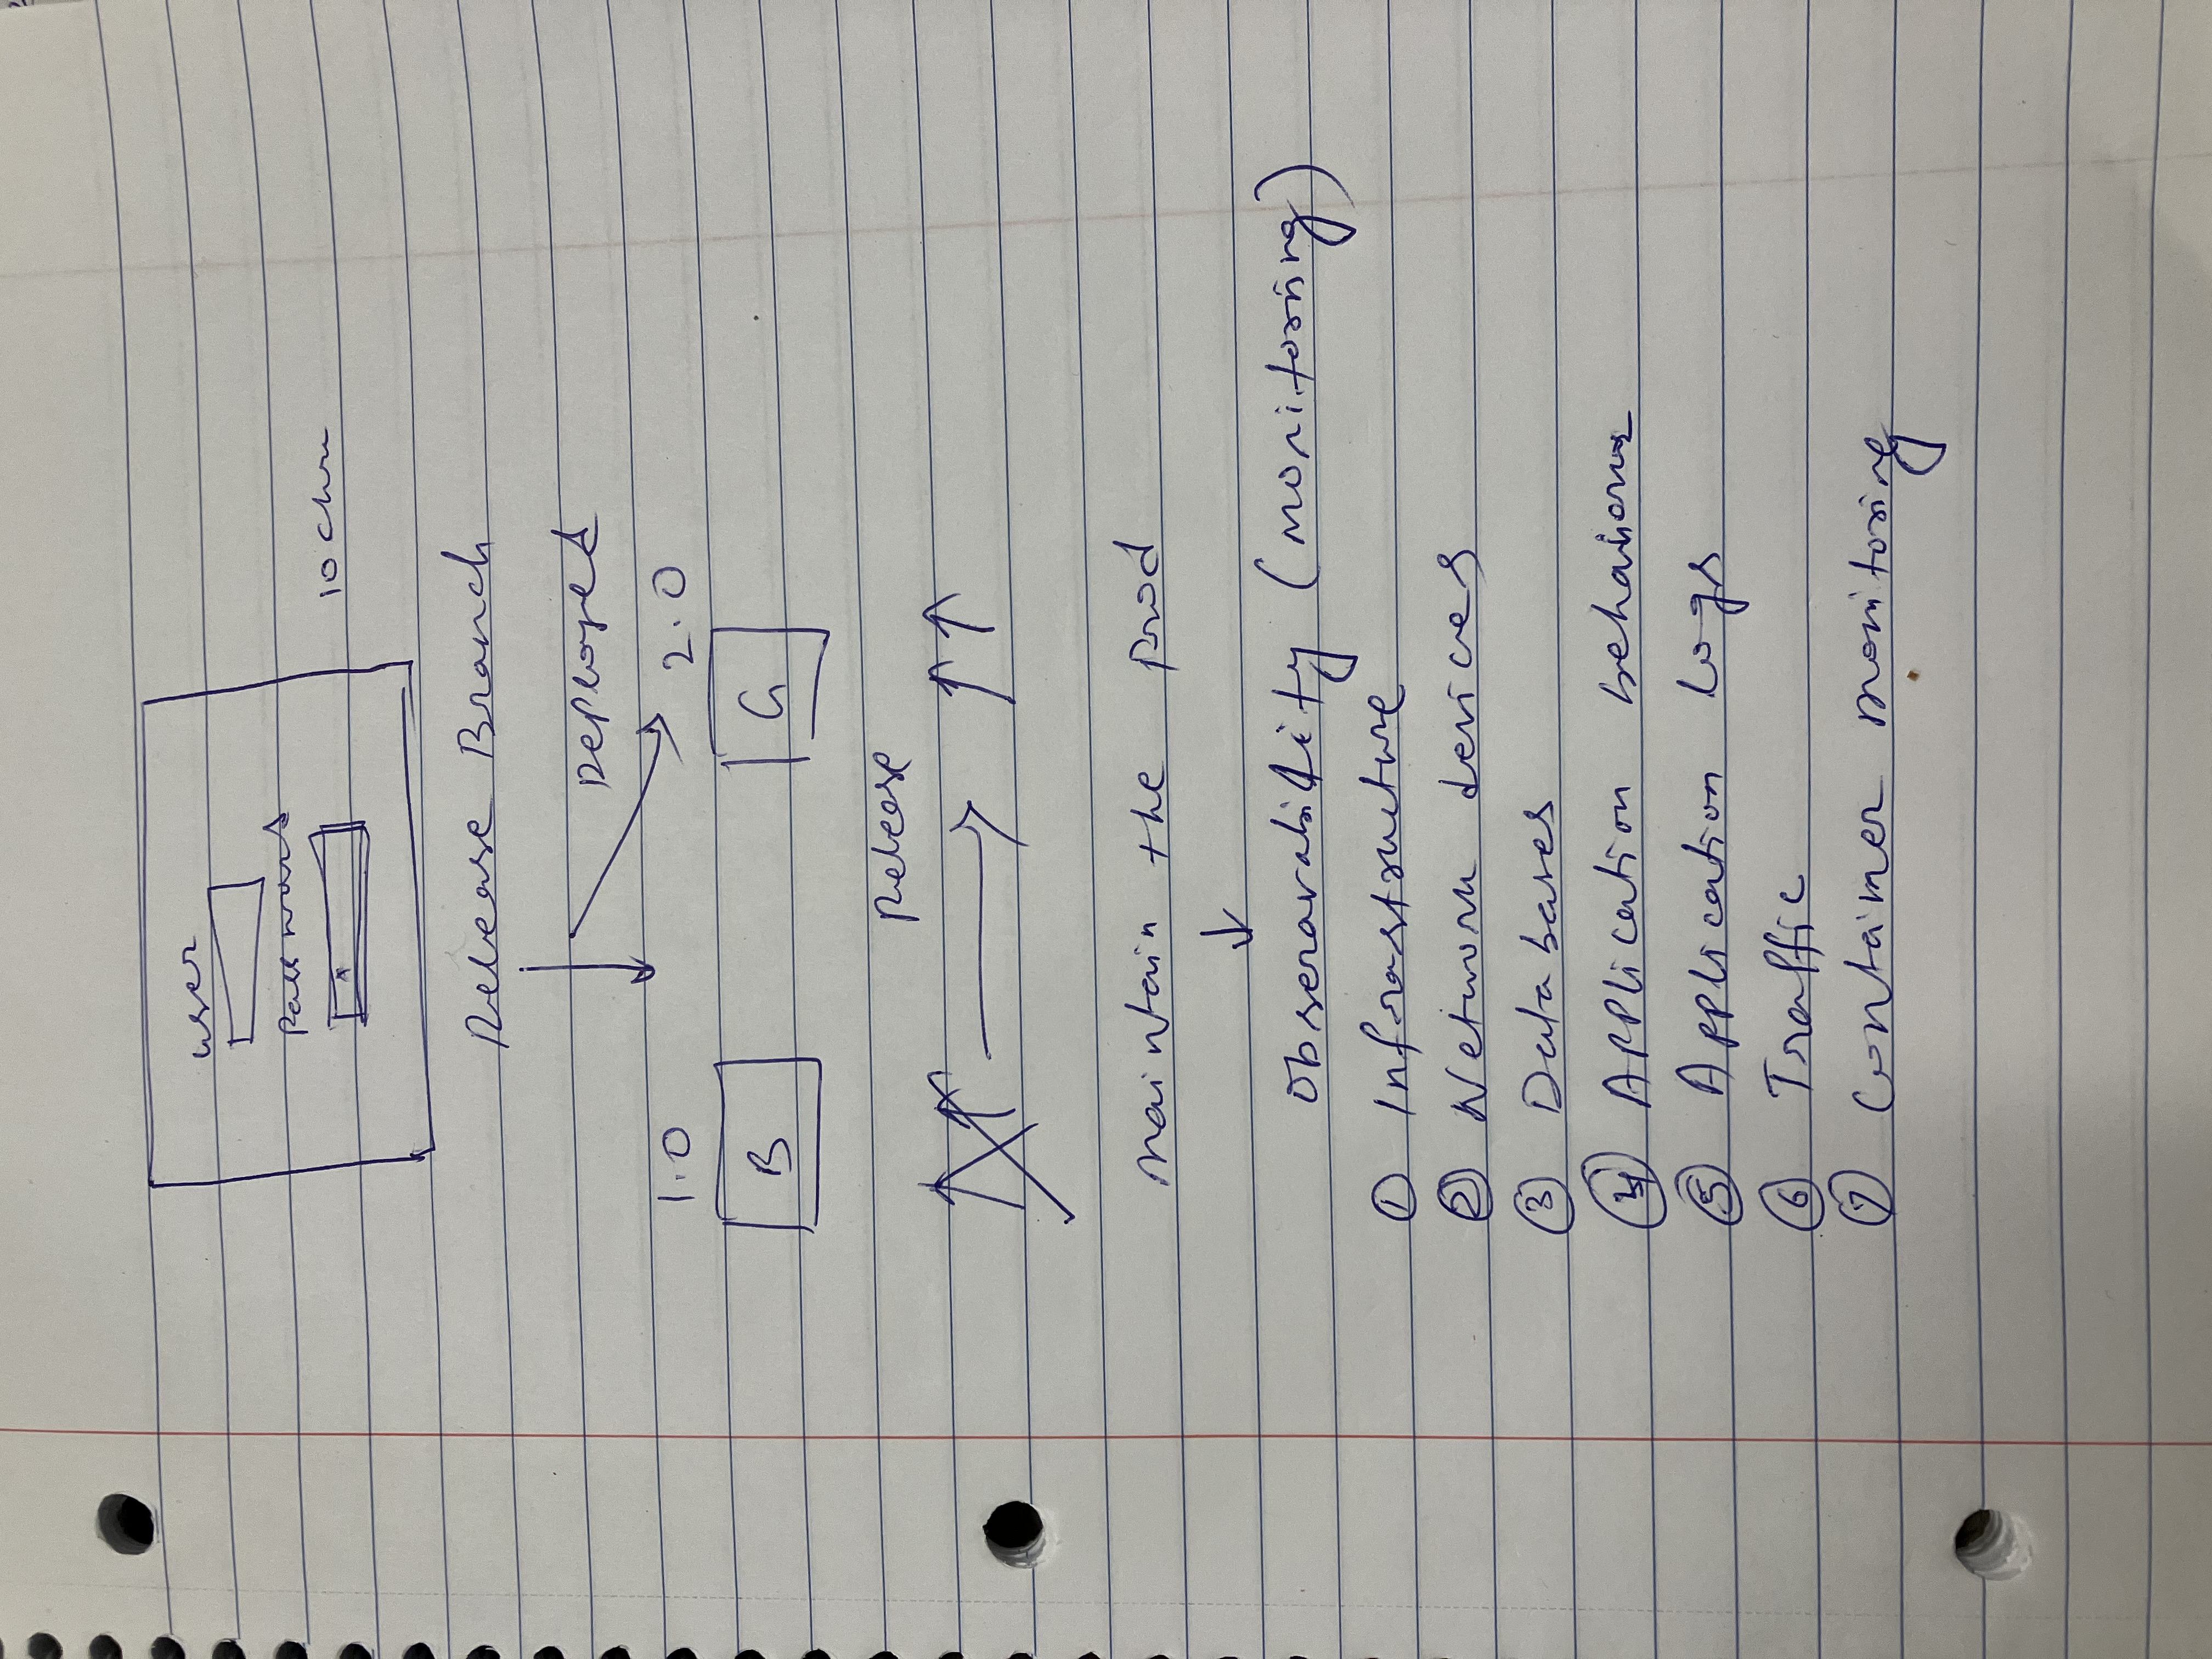 user
Password
*
10 Char
Release Branch
Deployed
1.0 2.0
B G
Release
Maintain the prod
Obseravability (Monitoring)
1 Infrastructure
2 Network devices
3 Databases
4 Application behaviour
5 Application logs
6 Traffic
7 Container monitoring